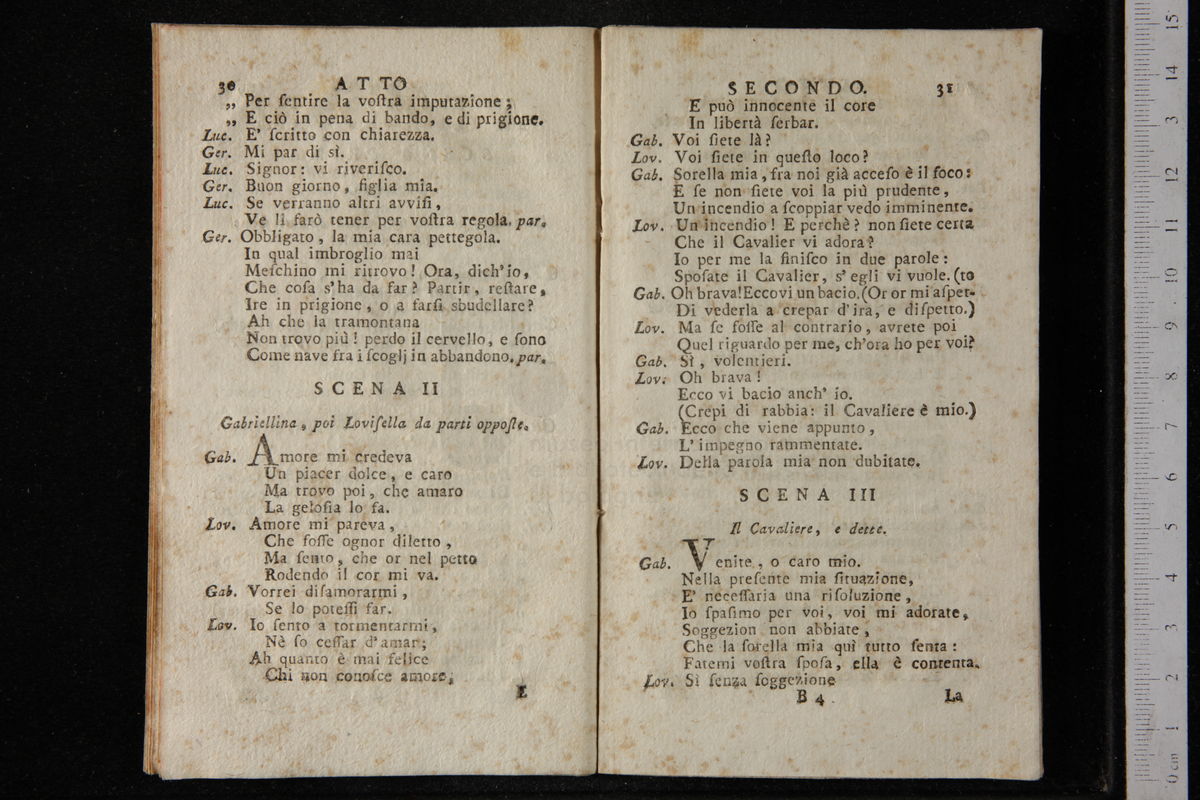 30 ATTO
„ Per ſentire la voſtra imputazione;
„ E ciò in pena di bando, e di prigione.
Luc. E' ſcritto con chiarezza.
Ger. Mi par di sì.
Luc. Signor: vi riveriſco.
Ger. Buon giorno, figlia mia.
Luc. Se verranno altri avviſi,
Ve li farò tener per voſtra regola. par.
Ger. Obbligato, la mia cara pettegola.
In qual imbroglio mai
Meſchino mi ritrovo! Ora, dich'io,
Che coſa s'ha da far? Partir, reſtare,
Ire in prigione, o a farſi sbudellare?
Ah che la tramontana
Non trovo più! perdo il cervello, e ſono
Come nave fra i ſcoglj in abbandono. par.
SCENA II
Gabriellina, poi Loviſella da parti oppoſte.
Gab. Amore mi credeva
Un piacer dolce, e caro
Ma trovo poi, che amaro
La geloſia lo fa.
Lov. Amore mi pareva,
Che foſſe ognor diletto,
Ma ſento, che or nel petto
Rodendo il cor mi va.
Gab. Vorrei diſamorarmi,
Se lo poteſſi far.
Lov. Io ſento a tormentarmi,
Nè ſo ceſſar d'amar;
Ah quanto è mai felice
Chi non conoſce amore,
E
SECONDO. 31
E può innocente il core
In libertà ſerbar.
Gab. Voi ſiete là?
Lov. Voi ſiete in queſto loco?
Gab. Sorella mia, fra noi già acceſo è il foco:
E ſe non ſiete voi la più prudente,
Un incendio a ſcoppiar vedo imminente.
Lov. Un incendio! E perchè? non ſiete certa
Che il Cavalier vi adora?
Io per me la finiſco in due parole:
Spoſate il Cavalier, s'egli vi vuole. (to
Gab. Oh brava! Eccovi un bacio. (Or or mi aſpet-
Di vederla a crepar d'ira, e diſpetto.)
Lov. Ma ſe foſſe al contrario, avrete poi
Quel riguardo per me, ch'ora ho per voi?
Gab. Sì, volentieri.
Lov. Oh brava!
Ecco vi bacio anch' io.
(Crepi di rabbia: il Cavaliere è mio.)
Gab. Ecco che viene appunto,
L' impegno rammentate.
Lov. Della parola mia non dubitate.
SCENA III
Il Cavaliere, e dette.
Gab. Venite, o caro mio.
Nella preſente mia ſituazione,
E' neceſſaria una riſoluzione,
Io ſpaſimo per voi, voi mi adorate,
Soggezion non abbiate,
Che la ſorella mia quì tutto ſenta:
Fatemi voſtra ſpoſa, ella è contenta.
Lov. Sì ſenza ſoggezione
B 4 La
0 cm 1 2 3 4 5 6 7 8 9 10 11 12 13 14 15